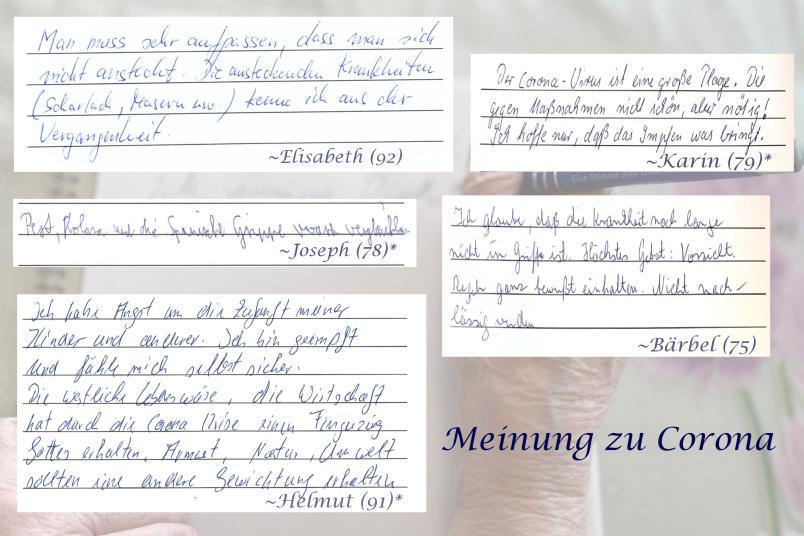 Man muss sehr aufpassen, dass man sich
nicht ansteckt. Die ansteckenden Krankheiten
(Scharlach, Masern usw.) kenne ich aus der
Vergangenheit.
~Elisabeth (92)
Der Corona-Virus ist eine große Plage. Die
gegen Maßnahmen nicht schön, aber nötig!
Ich hoffe nur, daß das Impfen was bringt.
~Karin (79)*
Eine Stimme aus
Pest, Kolera und die Spanische Grippe
~Joseph (78)*
Ich glaube, daß die Krankheit noch lange
nicht im Griff ist. Höchstes Gebot: Vorsicht.
Regeln ganz bewußt einhalten. Nicht nach-
lässig werden
~Bärbel (75)
Ich habe Angst um die Zukunft meiner
Kinder und anderer. Ich bin geimpft
und fühle mich selbst sicher.
Die westliche Lebensweise, die Wirtschaft
hat durch die Corona Krise einen Fingerzeig
Gottes erhalten. Armut, Natur, Umwelt
sollten eine andere Gewichtung erhalten
~Helmut (91)*
Meinung zu Corona